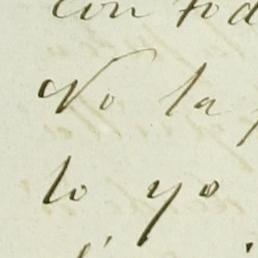 con tod
No la
lo yo